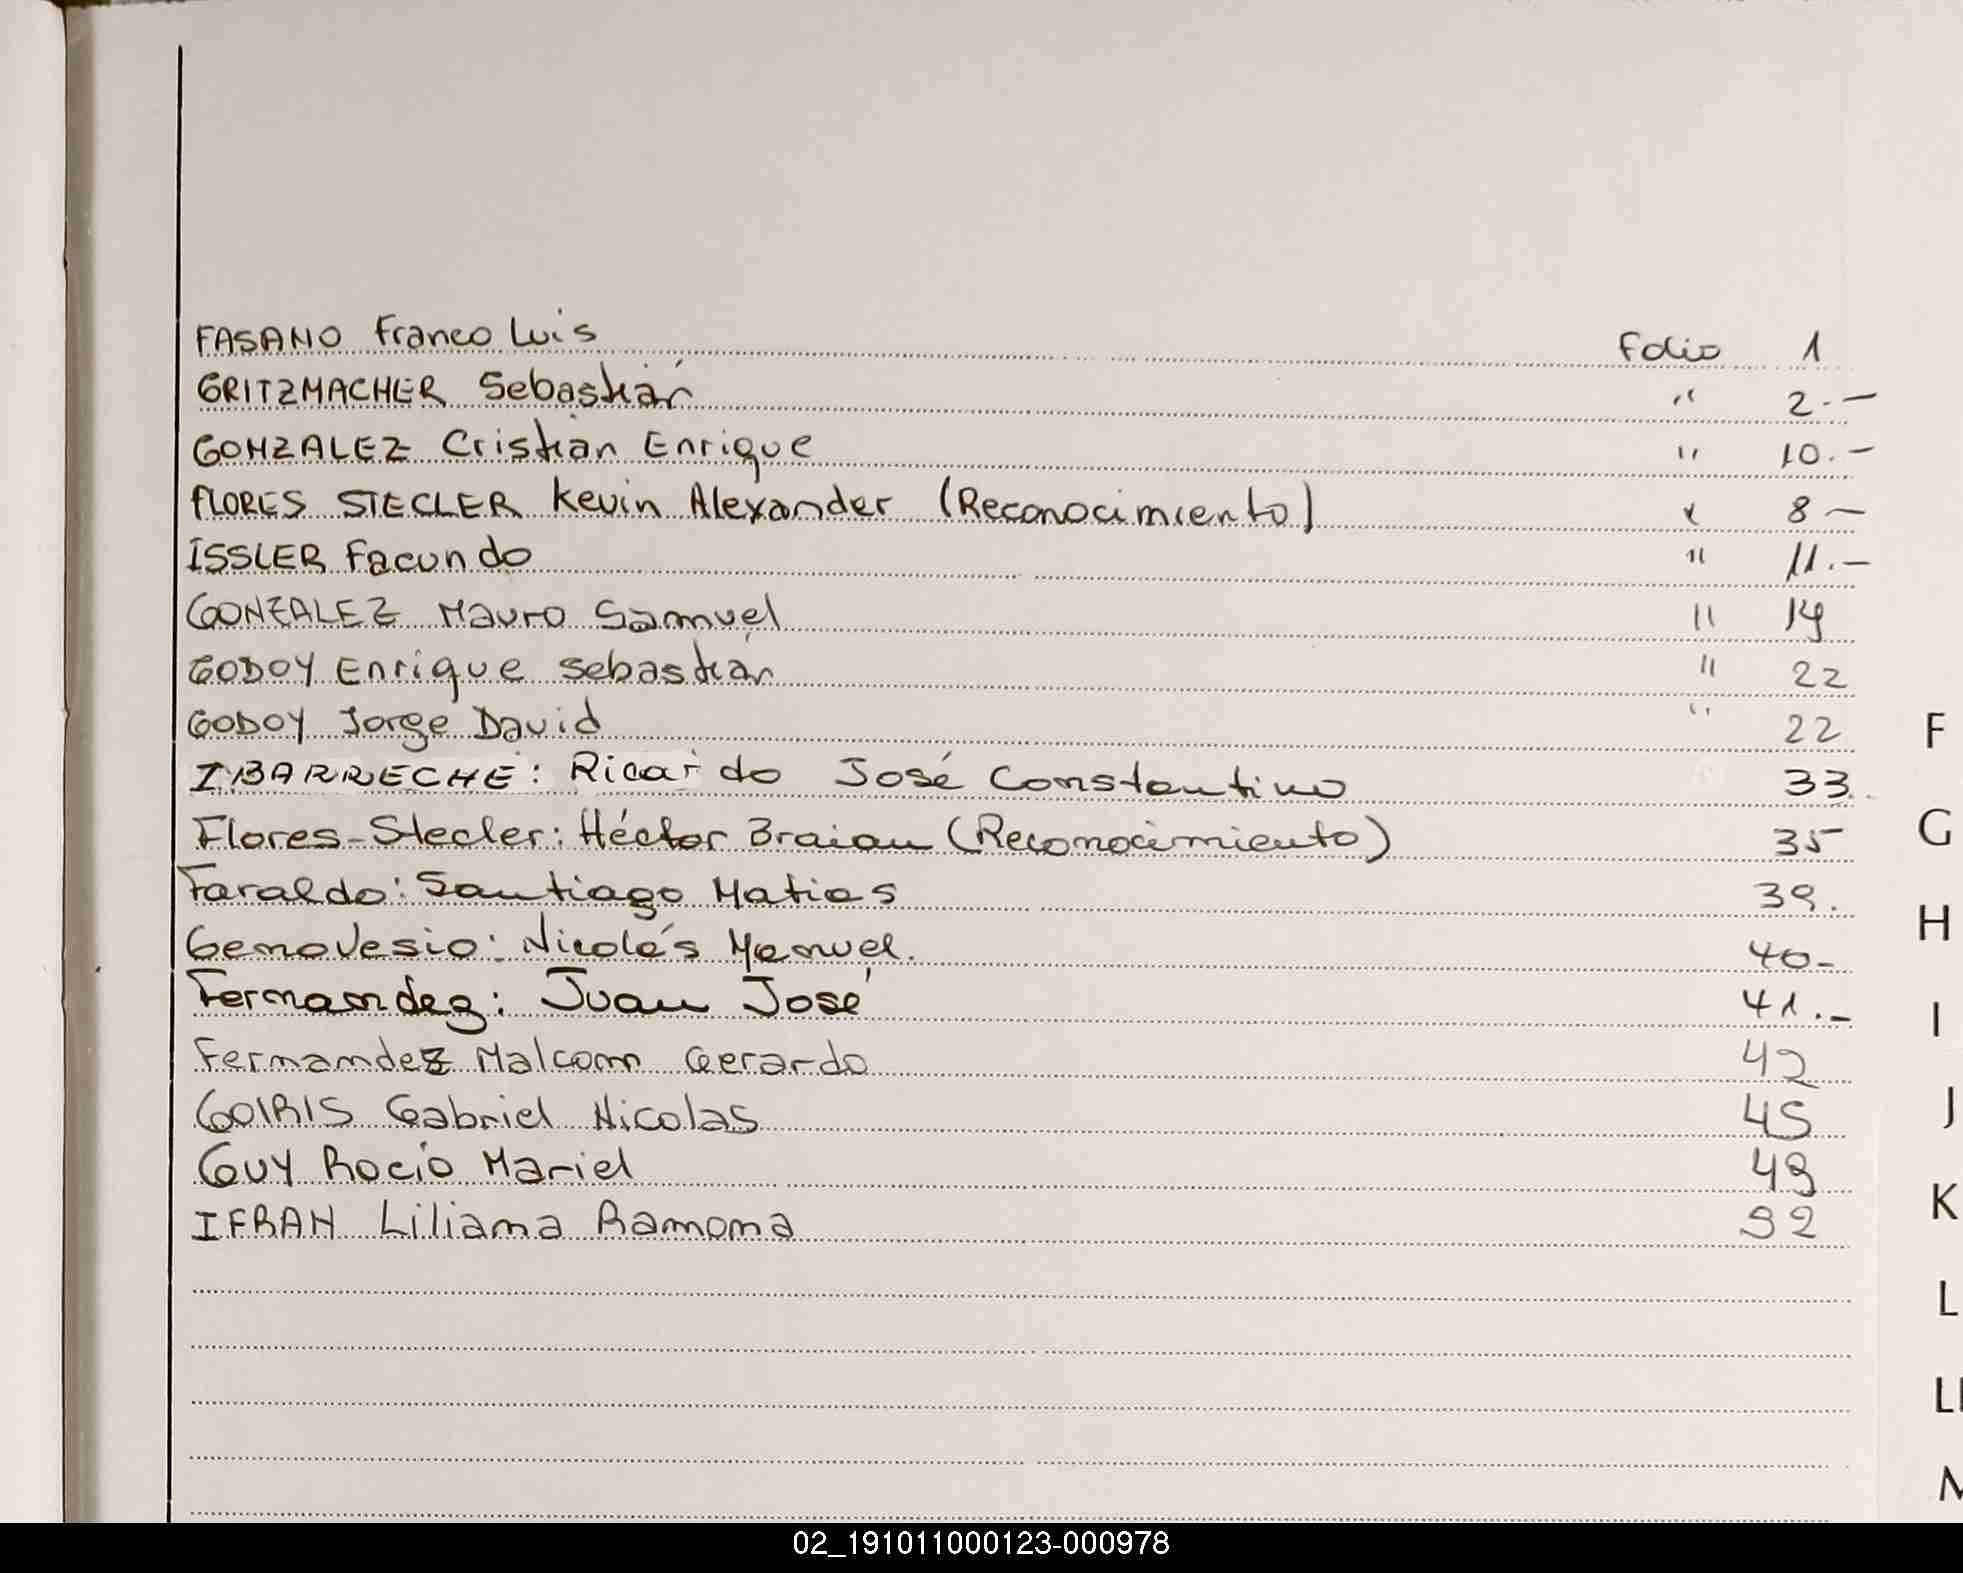 FASANO Franco Luis Folio 1
GRITZMACHER Sebastián " 2.-
GONZALEZ Cristian Enrique " 10.-
FLORES STECLER Kevin Alexander (Reconocimiento) " 8-
ISSLER Facundo " 11.-
GONZALEZ Mauro Samuel " 14
GODOY Enrique Sebastián " 22
GODOY Jorge David " 22
IBARRECHE: Ricardo José Constantino 33.
Flores-Stecler: Héctor Braian (Reconocimiento) 35
Faraldo: Santiago Matias 39.
Genovesio: Nicolás Manuel. 40-
Fernandez: Juan José 41.-
Fernandez Malcom Gerardo 42
GOIRIS Gabriel Nicolas 45
GUY Rocio Mariel 49
IFRAN Liliana Ramona 92
F
G
H
I
J
K
L
Ll
M
02_191011000123-000978